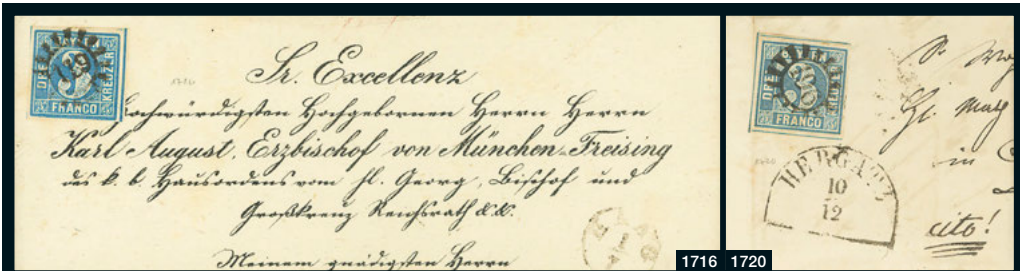 BAYERN
DREI
KREUZER
FRANCO
Sr. Excellenz
Hochwürdigsten Hochgebornen Herrn Herrn
Karl August, Erzbischof von München-Freising
des k. b. Hausordens vom hl. Georg, Bischof und
Großkreuz Reichsrath &.&.
Meinem gnädigsten Herrn
1716
DREI
FRANCO
HERGATZ
10
12
in
cito!
1720